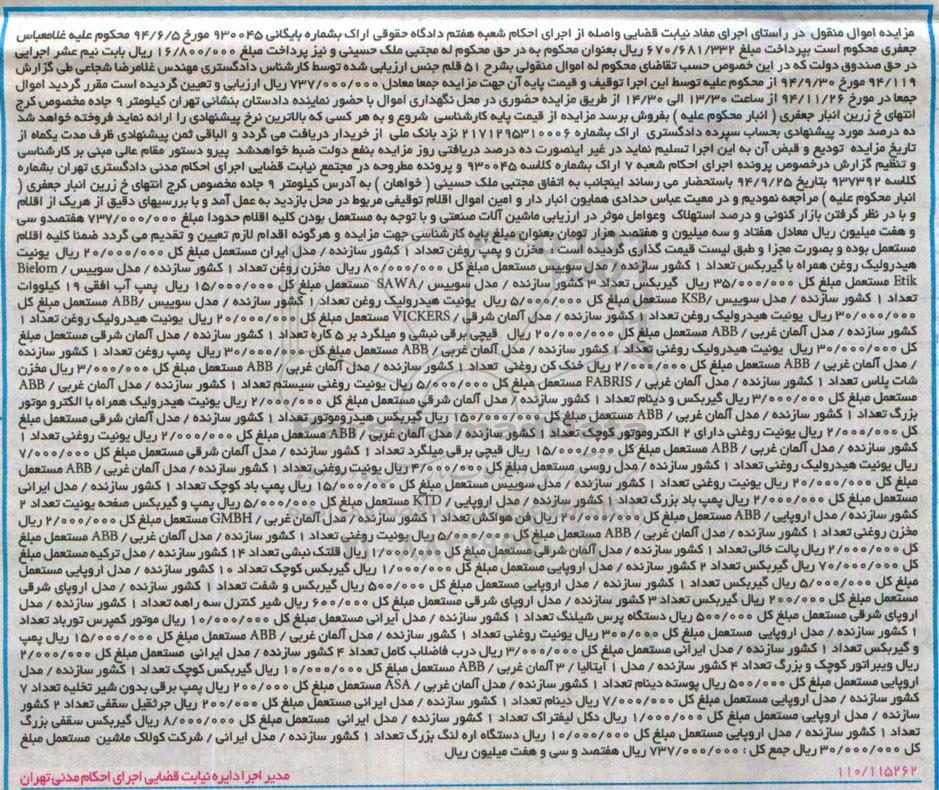 مزایده اموال منقول در راستای اجرای مفاد نیابت قضایی واصله از اجرای احکام شعبه هفتم دادگاه حقوقی اراک بشماره بایگانی ۹۳۰۰۴۵ مورخ ۹۴/۶/۵ محکوم علیه غلامعباس
جعفری محکوم است بپرداخت مبلغ ۶۷۰/۶۸۱/۳۳۲ ریال بعنوان محکوم به در حق محکوم له مجتبی ملک حسینی و نیز پرداخت مبلغ ۱۶/۸۰۰/۰۰۰ ریال بابت نیم عشر اجرایی
در حق صندوق دولت که در این خصوص حسب تقاضای محکوم له اموال منقولی بشرح ۵۱ قلم جنس ارزیابی شده توسط کارشناس دادگستری مهندس غلامرضا شجاعی طی گزارش
۹۴/۱۱۹ مورخ ۹۴/۹/۳۰ از محکوم علیه توسط این اجرا توقیف و قیمت پایه آن جهت مزایده جمعا معادل ۷۳۷/۰۰۰/۰۰۰ ریال ارزیابی و تعیین گردیده است مقرر گردید اموال
جمعا در مورخ ۹۴/۱۱/۲۶ از ساعت ۱۳/۳۰ الی ۱۴/۳۰ از طریق مزایده حضوری در محل نگهداری اموال با حضور نماینده دادستان بنشانی تهران کیلومتر ۹ جاده مخصوص کرج
انتهای خ زرین انبار جعفری ( انبار محکوم علیه ) بفروش برسد مزایده از قیمت پایه کارشناسی شروع و به هر کسی که بالاترین نرخ پیشنهادی را ارائه نماید فروخته خواهد شد
ده درصد مورد پیشنهادی بحساب سپرده دادگستری اراک بشماره ۲۱۷۱۲۹۵۳۱۰۰۰۶ نزد بانک ملی از خریدار دریافت می گردد و الباقی ثمن پیشنهادی ظرف مدت یکماه از
تاریخ مزایده تودیع و قبض آن به این اجرا تسلیم نماید در غیر اینصورت ده درصد دریافتی روز مزایده بنفع دولت ضبط خواهدشد پیرو دستور مقام عالی مبنی بر کارشناسی
و تنظیم گزارش درخصوص پرونده اجرای احکام شعبه ۷ اراک بشماره کلاسه ۹۳۰۰۴۵ و پرونده مطروحه در مجتمع نیابت قضایی اجرای احکام مدنی دادگستری تهران بشماره
کلاسه ۹۳۷۳۹۲ بتاریخ ۹۴/۹/۲۵ باستحضار می رساند اینجانب به اتفاق مجتبی ملک حسینی ( خواهان ) به آدرس کیلومتر ۹ جاده مخصوص کرج انتهای خ زرین انبار جعفری (
انبار محکوم علیه ) مراجعه نمودیم و در معیت عباس حدادی همایون انبار دار و امین اموال اقلام توقیفی مربوط در محل بازدید به عمل آمد و با بررسیهای دقیق از هریک از اقلام
و با در نظر گرفتن بازار کنونی و درصد استهلاک وعوامل موثر در ارزیابی ماشین آلات صنعتی و با توجه به مستعمل بودن کلیه اقلام حدودا مبلغ ۷۳۷/۰۰۰/۰۰۰ هفتصدو سی
و هفت میلیون ریال معادل هفتاد و سه میلیون و هفتصد هزار تومان بعنوان مبلغ پایه کارشناسی جهت مزایده و هرگونه اقدام لازم تعیین و تقدیم می گردد ضمنا کلیه اقلام
مستعمل بوده و بصورت مجزا و طبق لیست قیمت گذاری گردیده است : مخزن و پمپ روغن تعداد ۱ کشور سازنده / مدل ایران مستعمل مبلغ کل ۲۰/۰۰۰/۰۰۰ ریال یونیت
هیدرولیک روغن همراه با گیربکس تعداد ۱ کشور سازنده / مدل سوییس مستعمل مبلغ کل ۸۰/۰۰۰/۰۰۰ ریال مخزن روغن تعداد ۱ کشور سازنده / مدل سوییس / Bielom
Etik مستعمل مبلغ کل ۳۵/۰۰۰/۰۰۰ ریال گیربکس تعداد ۳ کشور سازنده / مدل سوییس /SAWA مستعمل مبلغ کل ۱۵/۰۰۰/۰۰۰ ریال پمپ آب افقی ۱۹ کیلووات
تعداد ۱ کشور سازنده / مدل سوییس /KSB مستعمل مبلغ کل ۵/۰۰۰/۰۰۰ ریال یونیت هیدرولیک روغن تعداد ۱ کشور سازنده / مدل سوییس /ABB مستعمل مبلغ کل
۳۰/۰۰۰/۰۰۰ ریال یونیت هیدرولیک روغن تعداد ۱ کشور سازنده / مدل آلمان شرقی / VICKERS مستعمل مبلغ کل ۲۰/۰۰۰/۰۰۰ ریال یونیت هیدرولیک روغن تعداد ۱
کشور سازنده / مدل آلمان غربی / ABB مستعمل مبلغ کل ۲۰/۰۰۰/۰۰۰ ریال قیچی برقی نبشی و میلگرد بر ۵ کاره تعداد ۱ کشور سازنده / مدل آلمان شرقی مستعمل مبلغ
کل ۳۰/۰۰۰/۰۰۰ ریال یونیت هیدرولیک روغنی تعداد ۱ کشور سازنده / مدل آلمان غربی / ABB مستعمل مبلغ کل ۳۰/۰۰۰/۰۰۰ ریال پمپ روغن تعداد ۱ کشور سازنده
/ مدل آلمان غربی / ABB مستعمل مبلغ کل ۲/۰۰۰/۰۰۰ ریال خنک کن روغنی تعداد ۱ کشور سازنده / مدل آلمان غربی / ABB مستعمل مبلغ کل ۳/۰۰۰/۰۰۰ ریال مخزن
شات پلاس تعداد ۱ کشور سازنده / مدل آلمان غربی / FABRIS مستعمل مبلغ کل ۵/۰۰۰/۰۰۰ ریال یونیت روغنی سیستم تعداد ۱ کشور سازنده / مدل آلمان غربی / ABB
مستعمل مبلغ کل ۳/۰۰۰/۰۰۰ ریال گیربکس و دینام تعداد ۱ کشور سازنده / مدل آلمان شرقی مستعمل مبلغ کل ۲/۰۰۰/۰۰۰ ریال یونیت هیدرولیک همراه با الکترو موتور
بزرگ تعداد ۱ کشور سازنده / مدل آلمان غربی / ABB مستعمل مبلغ کل ۱۵۰/۰۰۰/۰۰۰ ریال گیربکس هیدروموتور تعداد ۱ کشور سازنده / مدل آلمان شرقی مستعمل مبلغ
کل ۲/۰۰۰/۰۰۰ ریال یونیت روغنی دارای ۲ الکتروموتور کوچک تعداد ۱ کشور سازنده / مدل آلمان غربی / ABB مستعمل مبلغ کل ۲/۰۰۰/۰۰۰ ریال یونیت روغنی تعداد ۱
کشور سازنده / مدل آلمان غربی / ABB مستعمل مبلغ کل ۱۵/۰۰۰/۰۰۰ ریال قیچی برقی میلگرد تعداد ۱ کشور سازنده / مدل آلمان شرقی مستعمل مبلغ کل ۷/۰۰۰/۰۰۰
ریال یونیت هیدرولیک روغنی تعداد ۱ کشور سازنده / مدل روسی مستعمل مبلغ کل ۴/۰۰۰/۰۰۰ ریال یونیت روغنی تعداد ۱ کشور سازنده / مدل آلمان غربی / ABB مستعمل
مبلغ کل ۲۰/۰۰۰/۰۰۰ ریال یونیت روغنی تعداد ۱ کشور سازنده / مدل سوییس مستعمل مبلغ کل ۱۵/۰۰۰/۰۰۰ ریال پمپ باد کوچک تعداد ۱ کشور سازنده / مدل ایرانی
مستعمل مبلغ کل ۲/۰۰۰/۰۰۰ ریال پمپ باد بزرگ تعداد ۱ کشور سازنده / مدل اروپایی / KTD مستعمل مبلغ کل ۵/۰۰۰/۰۰۰ ریال پمپ و گیربکس صفحه یونیت تعداد ۲
کشور سازنده / مدل اروپایی / ABB مستعمل مبلغ کل ۲۰/۰۰۰/۰۰۰ ریال فن هواکش تعداد ۱ کشور سازنده / مدل آلمان غربی / GMBH مستعمل مبلغ کل ۲/۰۰۰/۰۰۰ ریال
مخزن روغنی تعداد ۱ کشور سازنده / مدل آلمان غربی / ABB مستعمل مبلغ کل ۵/۰۰۰/۰۰۰ ریال یونیت روغنی تعداد ۱ کشور سازنده / مدل آلمان غربی / ABB مستعمل مبلغ
کل ۲/۰۰۰/۰۰۰ ریال پالت خالی تعداد ۱ کشور سازنده / مدل آلمان شرقی مستعمل مبلغ کل ۱/۰۰۰/۰۰۰ ریال قلتک نبشی تعداد ۱۴ کشور سازنده / مدل ترکیه مستعمل مبلغ
کل ۷۰/۰۰۰/۰۰۰ ریال گیربکس تعداد ۲ کشور سازنده / مدل اروپایی مستعمل مبلغ کل ۱/۰۰۰/۰۰۰ ریال گیربکس کوچک تعداد ۱۰ کشور سازنده / مدل اروپایی مستعمل
مبلغ کل ۵/۰۰۰/۰۰۰ ریال گیربکس تعداد ۱ کشور سازنده / مدل اروپایی مستعمل مبلغ کل ۵۰۰/۰۰۰ ریال گیربکس و شفت تعداد ۱ کشور سازنده / مدل اروپای شرقی
مستعمل مبلغ کل ۲۰۰/۰۰۰ ریال گیربکس تعداد ۳ کشور سازنده / مدل اروپای شرقی مستعمل مبلغ کل ۶۰۰/۰۰۰ ریال شیر کنترل سه راهه تعداد ۱ کشور سازنده / مدل
اروپای شرقی مستعمل مبلغ کل ۵۰۰/۰۰۰ ریال دستگاه پرس شیلنگ تعداد ۱ کشور سازنده / مدل ایرانی مستعمل مبلغ کل ۱۰/۰۰۰/۰۰۰ ریال موتور کمپرس تورباد تعداد
۱ کشور سازنده / مدل اروپایی مستعمل مبلغ کل ۳۰۰/۰۰۰ ریال یونیت روغنی تعداد ۱ کشور سازنده / مدل آلمان غربی / ABB مستعمل مبلغ کل ۱۵/۰۰۰/۰۰۰ ریال پمپ
و گیربکس تعداد ۱ کشور سازنده / مدل ایرانی مستعمل مبلغ کل ۳/۰۰۰/۰۰۰ ریال درب فاضلاب کامل تعداد ۴ کشور سازنده / مدل ایرانی مستعمل مبلغ کل ۲/۰۰۰/۰۰۰
ریال ویبراتور کوچک و بزرگ تعداد ۴ کشور سازنده / مدل ۱ ایتالیا / ۳ آلمان غربی / ABB مستعمل مبلغ کل ۱۰/۰۰۰/۰۰۰ ریال گیربکس کوچک تعداد ۱ کشور سازنده / مدل
اروپایی مستعمل مبلغ کل ۵۰۰/۰۰۰ ریال پوسته دینام تعداد ۱ کشور سازنده / مدل آلمان غربی / ASA مستعمل مبلغ کل ۲۰۰/۰۰۰ ریال پمپ برقی بدون شیر تخلیه تعداد ۷
کشور سازنده / مدل اروپایی مستعمل مبلغ کل ۷/۰۰۰/۰۰۰ ریال دینام تعداد ۱ کشور سازنده / مدل ایرانی مستعمل مبلغ کل ۲۰۰/۰۰۰ ریال جرثقیل سقفی تعداد ۲ کشور
سازنده / مدل اروپایی مستعمل مبلغ کل ۱/۰۰۰/۰۰۰ ریال دکل لیفتراک تعداد ۱ کشور سازنده / مدل ایرانی مستعمل مبلغ کل ۸/۰۰۰/۰۰۰ ریال گیربکس سقفی بزرگ
تعداد ۱ کشور سازنده / مدل اروپایی مستعمل مبلغ کل ۱۰/۰۰۰/۰۰۰ ریال دستگاه اره لنگ بزرگ تعداد ۱ کشور سازنده / مدل ایرانی / شرکت کولاک ماشین مستعمل مبلغ
کل ۳۰/۰۰۰/۰۰۰ ریال جمع کل : ۷۳۷/۰۰۰/۰۰۰ ریال هفتصد و سی و هفت میلیون ریال
۱۱۰/۱۱۵۲۶۲ مدیر اجرا دایره نیابت قضایی اجرای احکام مدنی تهران